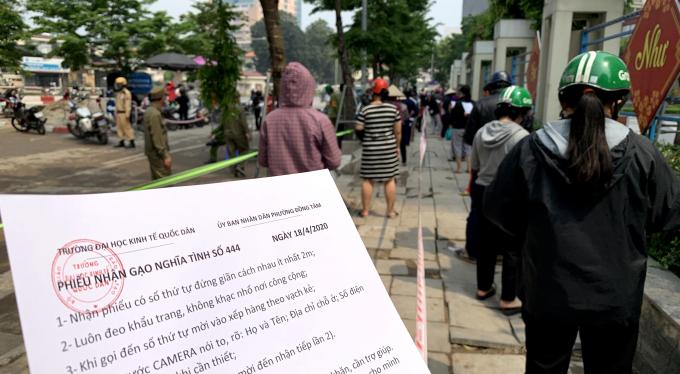 TRƯỜNG ĐẠI HỌC KINH TẾ QUỐC DÂN
ỦY BAN NHÂN DÂN PHƯỜNG ĐỒNG TÂM
PHIẾU NHẬN GẠO NGHĨA TÌNH SỐ 444
NGÀY 18/4/2020
TRƯỜNG
ĐẠI HỌC KINH TẾ
QUỐC DÂN
1- Nhận phiếu có số thứ tự đứng giãn cách nhau ít nhất 2m;
2- Luôn đeo khẩu trang, không khạc nhổ nơi công cộng;
3- Khi gọi đến số thứ tự mời vào xếp hàng theo vạch kẻ;
CAMERA nói to, rõ: Họ và Tên; Địa chỉ chỗ ở; Số điện
khi cần thiết;
mời đến nhận tiếp lần 2).
nhận, cần trợ giúp.
cho mình
Như
Grab